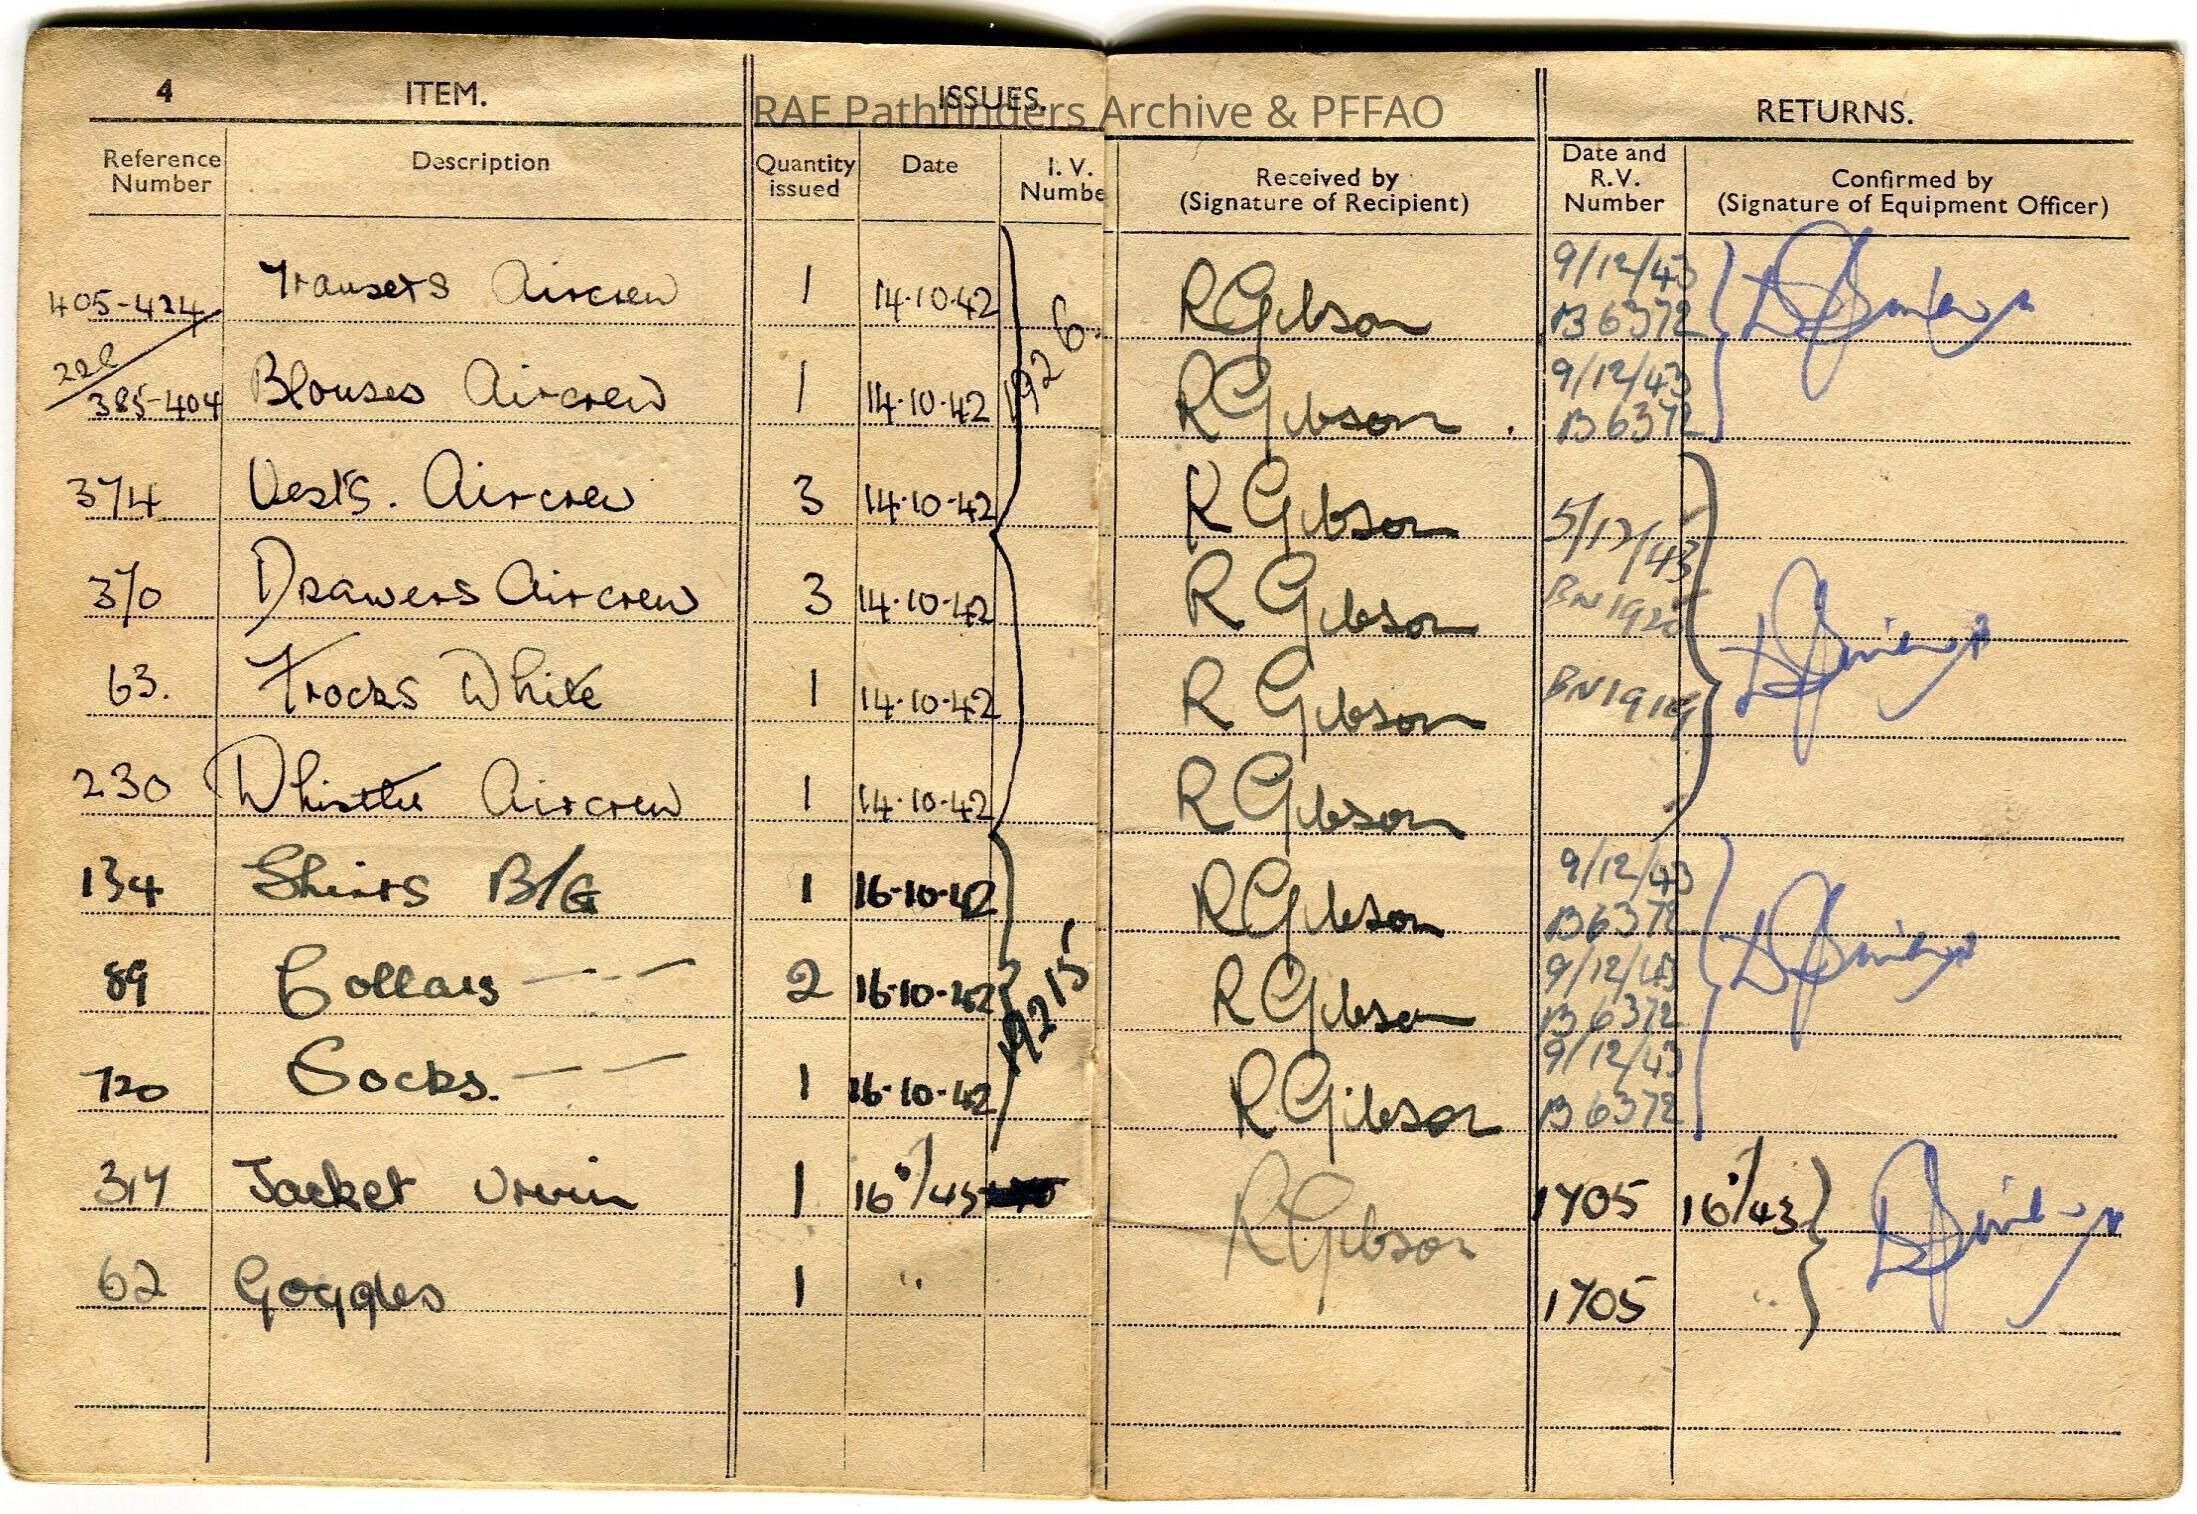 4 ITEM. ISSUES. RETURNS.
RAF Pathfinders Archive & PFFAO
Reference Number Description Quantity issued Date I. V. Numbe Received by (Signature of Recipient) Date and R.V. Number Confirmed by (Signature of Equipment Officer)
405-424 Trousers Aircrew 1 14.10.42 R Gibson 9/12/43 B 6372
22c
385-404 Blouses Aircrew 1 14.10.42 1926 R Gibson 9/12/43 B 6372
374 Vests. Aircrew 3 14.10.42 R Gibson 5/12/43
370 Drawers Aircrew 3 14.10.42 R Gibson BN1925
63. Frocks White 1 14.10.42 R Gibson BN1919
230 Whistle Aircrew 1 14.10.42 R Gibson
134 Shirts B/G 1 16.10.42 R Gibson 9/12/43 B 6372
89 Collars — — 2 16.10.42 19215 R Gibson 9/12/43 B 6372
120 Socks. — — 1 16.10.42 R Gibson 9/12/43 B 6372
317 Jacket Irvin 1 R Gibson 1705
62 Goggles 1 " 1705 "